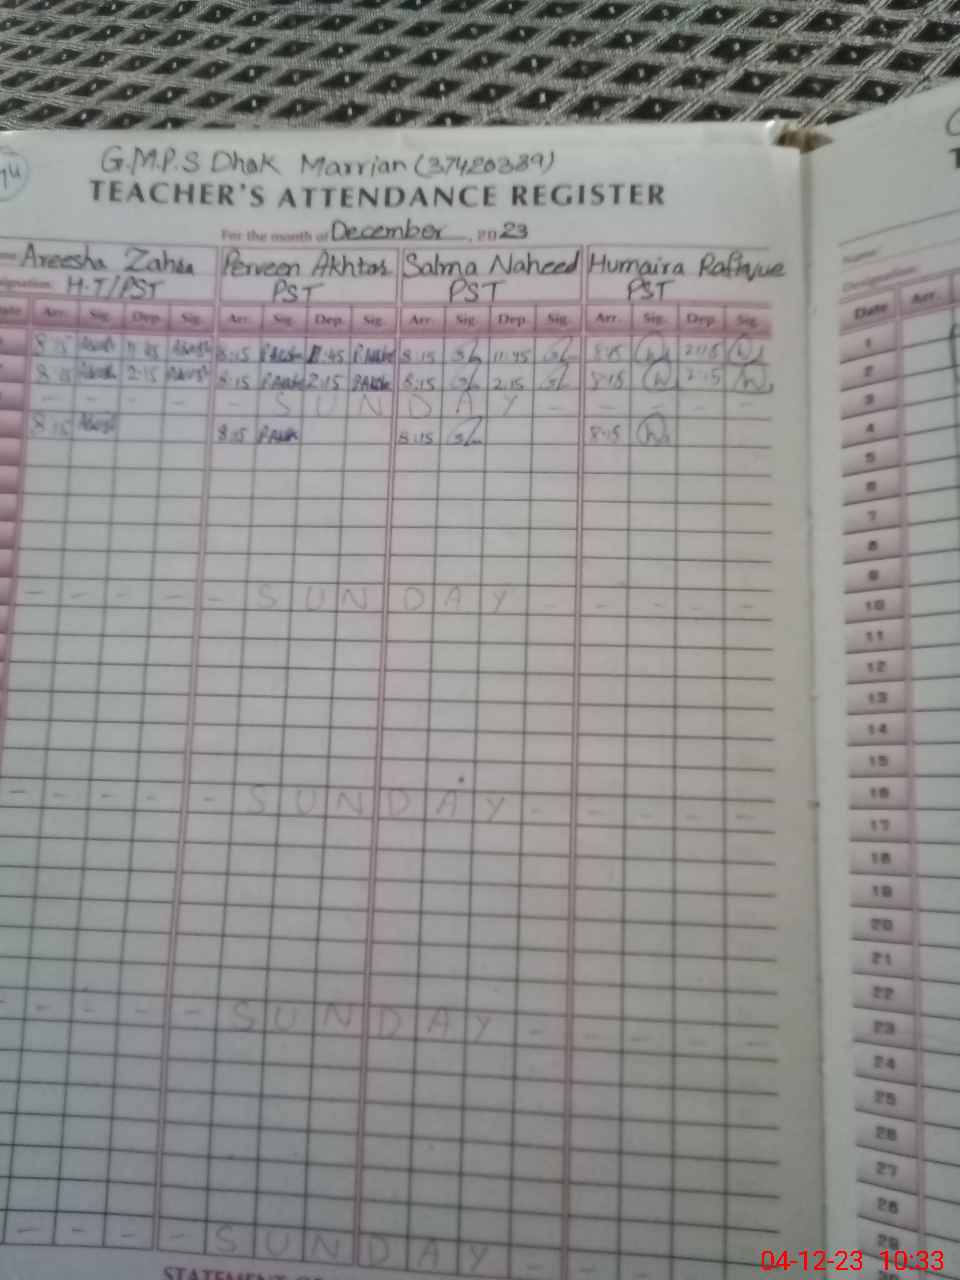 G.M.P.S Dhok Marrian (37420389)
TEACHER'S ATTENDANCE REGISTER
For the month of December, 2023
Areesha Zahra Perveen Akhtar Salma Naheed Humaira Rafique
H.T/PST PST PST PST
Arr. Sig. Dep. Sig. Arr. Sig. Dep. Sig. Arr. Sig. Dep. Sig. Arr. Sig. Dep. Sig.
8:15 11:45 8:15 11:45 8:15 11:45 8:15
8:15 2:15 8:15 2:15 8:15 2:15 8:15 2:15
- - - - - S U N D A Y - - - - -
8:15 8:15 8:15 8:15
- - - - - S U N D A Y - - - - -
- - - - - S U N D A Y - - - - -
- - - - - S U N D A Y - - - - -
- - - - S U N D A Y -
STATEMENT
Name
Designation
Date Arr.
1
2
3
4
5
6
7
8
9
10
11
12
13
14
15
16
17
18
19
20
21
22
23
24
25
26
27
28
29
04-12-23 10:33